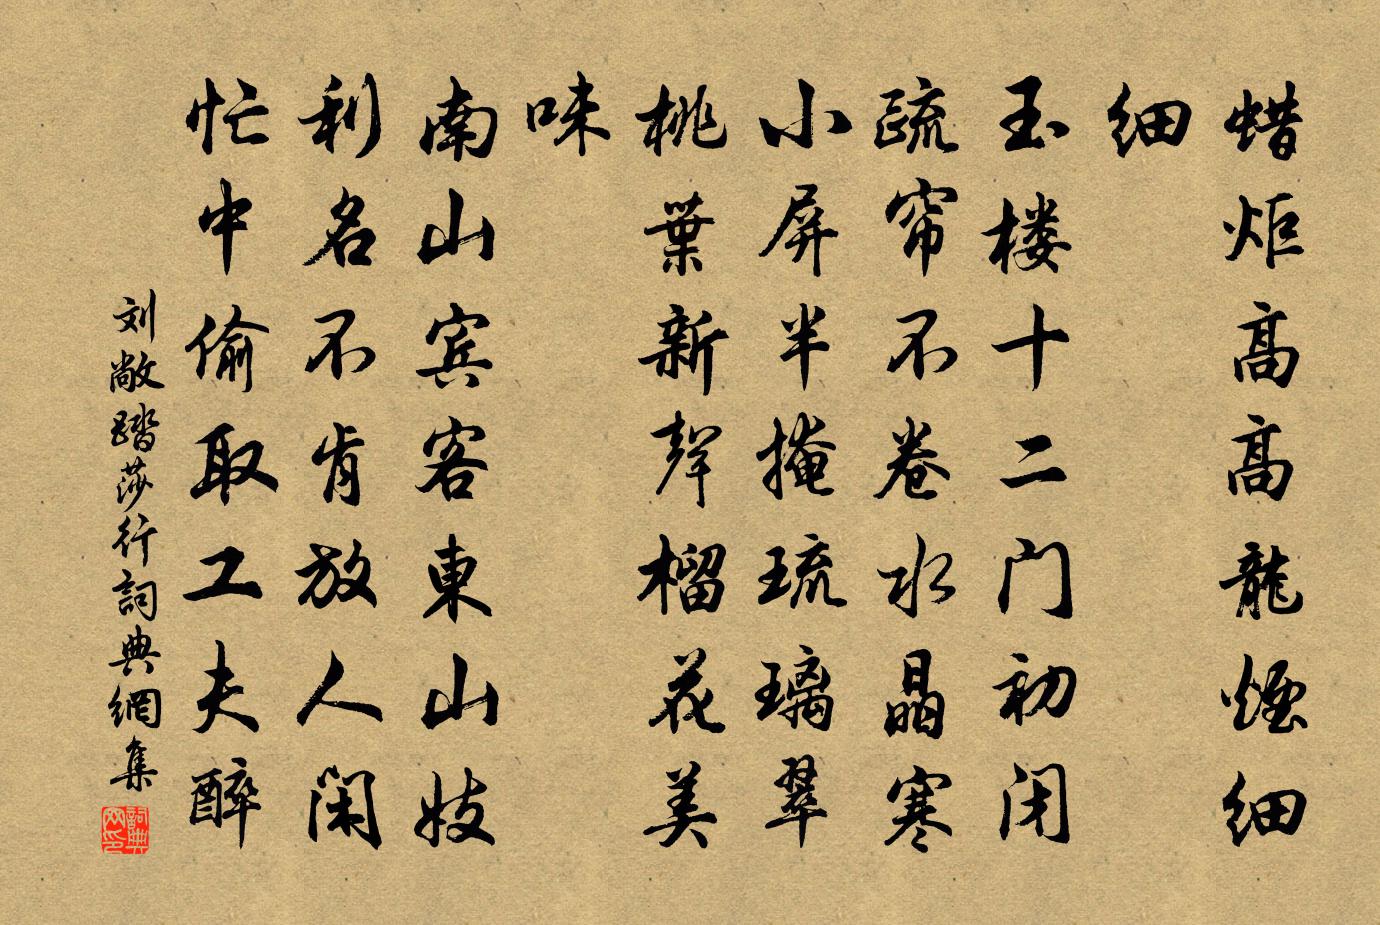 蜡炬高高龍煙細
細
玉楼十二门初闭
疏帘不卷水晶寒
小屏半掩琉璃翠
桃葉新聲榴花美
味
南山宾客東山妓
利名不肯放人闲
忙中偷取工夫醉
刘敞踏莎行詞典網集
詞典网印